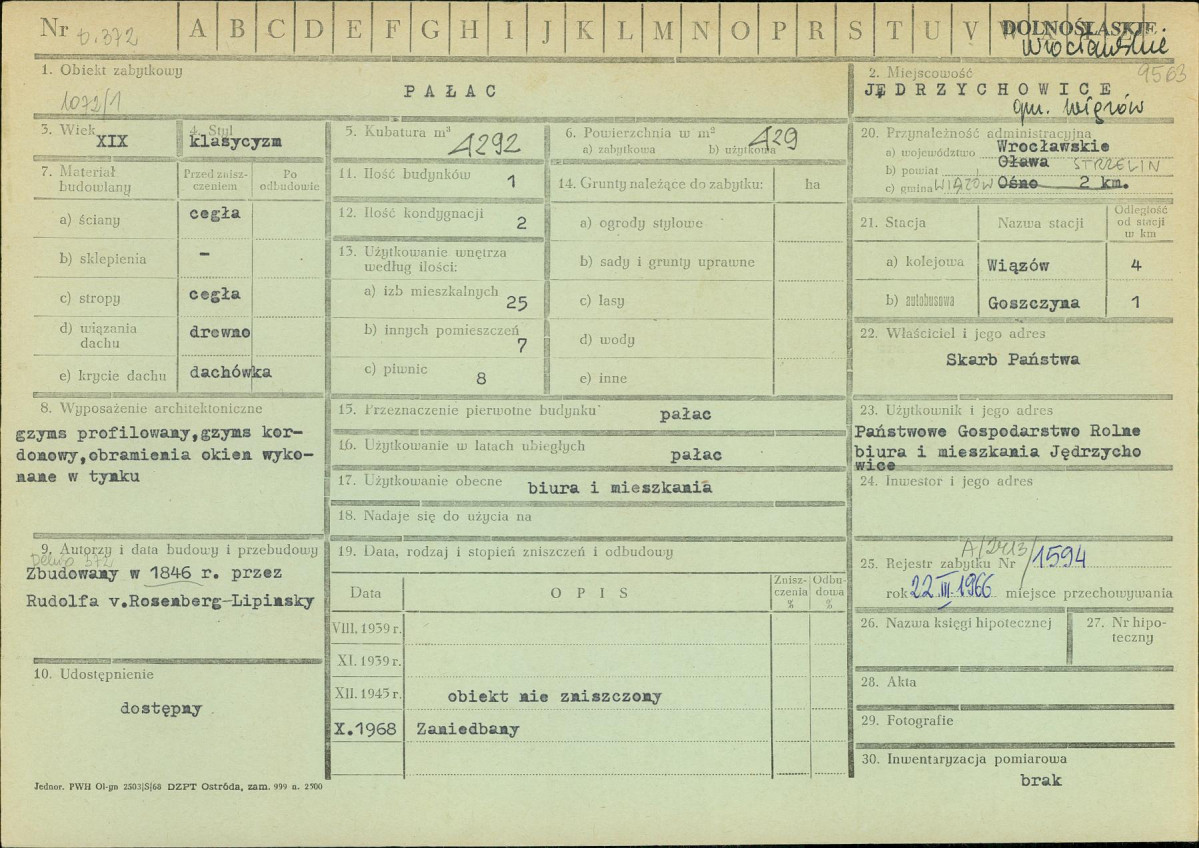 Nr b.372 A B C D E F G H I J K L M N O P R S T U V W DOLNOŚLĄSKIE
Wrocławskie
1. Obiekt zabytkowy
1072/1
PAŁAC
2. Miejscowość 9563
JĘDRZYCHOWICE
gm. Wiązów
3. Wiek
XIX
4. Styl
klasycyzm
5. Kubatura m³ 4292
6. Powierzchnia w m² 429
a) zabytkowa b) użytkowa
20. Przynależność administracyjna
a) województwo Wrocławskie
b) powiat Oława STRZELIN
c) gmina WIĄZÓW Ośno 2 km.
7. Materiał budowlany
Przed zniszczeniem
Po odbudowie
a) ściany cegła
b) sklepienia -
c) stropy cegła
d) wiązania dachu drewno
e) krycie dachu dachówka
11. Ilość budynków 1
12. Ilość kondygnacji 2
13. Użytkowanie wnętrza
według ilości:
a) izb mieszkalnych 25
b) innych pomieszczeń 7
c) piwnic 8
14. Grunty należące do zabytku: ha
a) ogrody stylowe
b) sady i grunty uprawne
c) lasy
d) wody
e) inne
21. Stacja Nazwa stacji Odległość od stacji w km
a) kolejowa Wiązów 4
b) autobusowa Goszczyna 1
22. Właściciel i jego adres
Skarb Państwa
8. Wyposażenie architektoniczne
gzyms profilowany,gzyms kor-
donowy,obramienia okien wyko-
nane w tynku
15. Przeznaczenie pierwotne budynku pałac
16. Użytkowanie w latach ubiegłych pałac
17. Użytkowanie obecne biura i mieszkania
18. Nadaje się do użycia na
23. Użytkownik i jego adres
Państwowe Gospodarstwo Rolne
biura i mieszkania Jędrzycho
wice
24. Inwestor i jego adres
9. Autorzy i data budowy i przebudowy
Zbudowany w 1846 r. przez
Rudolfa v.Rosenberg-Lipinsky
10. Udostępnienie
dostępny
19. Data, rodzaj i stopień zniszczeń i odbudowy
Data OPIS Zniszczenia % Odbudowa %
VIII. 1939 r.
XI. 1939 r.
XII. 1945 r. obiekt nie zniszczony
X.1968 Zaniedbany
25. Rejestr zabytku Nr A/2413/1594
rok 22.III.1966 miejsce przechowywania
26. Nazwa księgi hipotecznej
27. Nr hipo-
teczny
28. Akta
29. Fotografie
30. Inwentaryzacja pomiarowa
brak
Jednor. PWH Ol-gn 2503|S|68 DZPT Ostróda, zam. 999 n. 2500